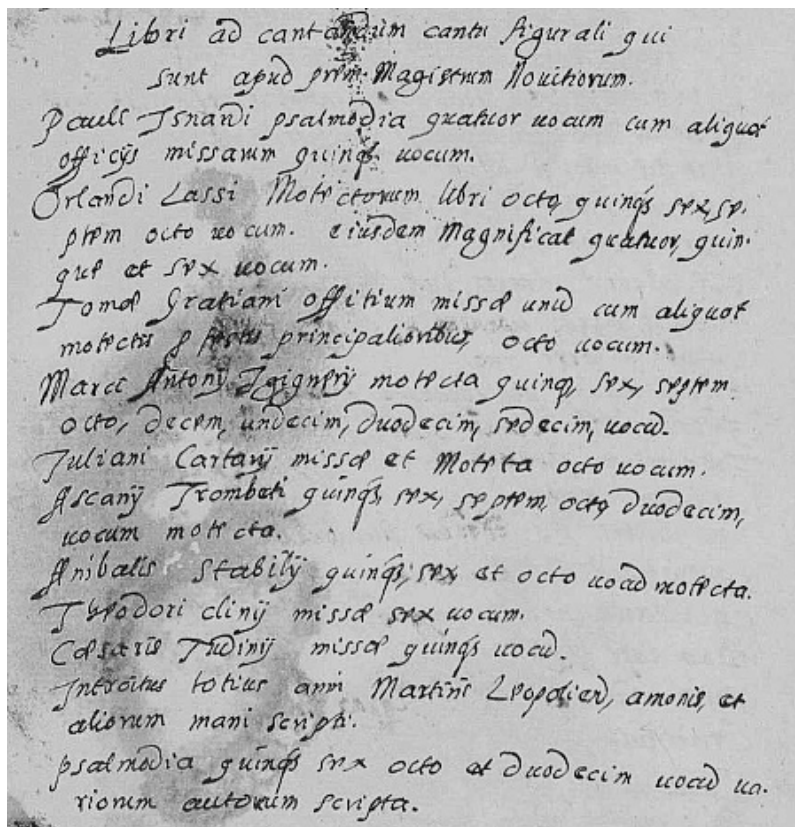 Libri ad cantandum cantu figurali qui
sunt apud prem Magistrum Novitiorum.
Pauli Isnardi psalmodia quatuor uocum cum aliquot
officijs missarum quinq uocum.
Orlandi Lassi Motectorum libri octo, quinqs sex, se-
ptem octo uocum. eiusdem Magnificat quatuor, quin-
que et sex uocum.
Tomæ Gratiani offitium missæ unū cum aliquot
motectis p festis principalioribus, octo uocum.
Marci Antonij Igignerij motecta quinq, sex, septem
octo, decem, undecim, duodecim, sedecim, uocū.
Iuliani Cartarij missæ et Moteta octo uocum.
Ascanij Trombeti quinqs, sex, septem, octo, duodecim,
uocum motecta.
Anibalis Stabilij quinqs, sex et octo uocū motecta.
Theodori clinij missæ sex uocum.
Cæsaris Tudinij missæ quinqs uocū.
Introitus totius anni Martini, amonis, et
aliorum mani scripti.
psalmodia quinqs sex octo et duodecim uocū ua-
riorum autorum scripta.